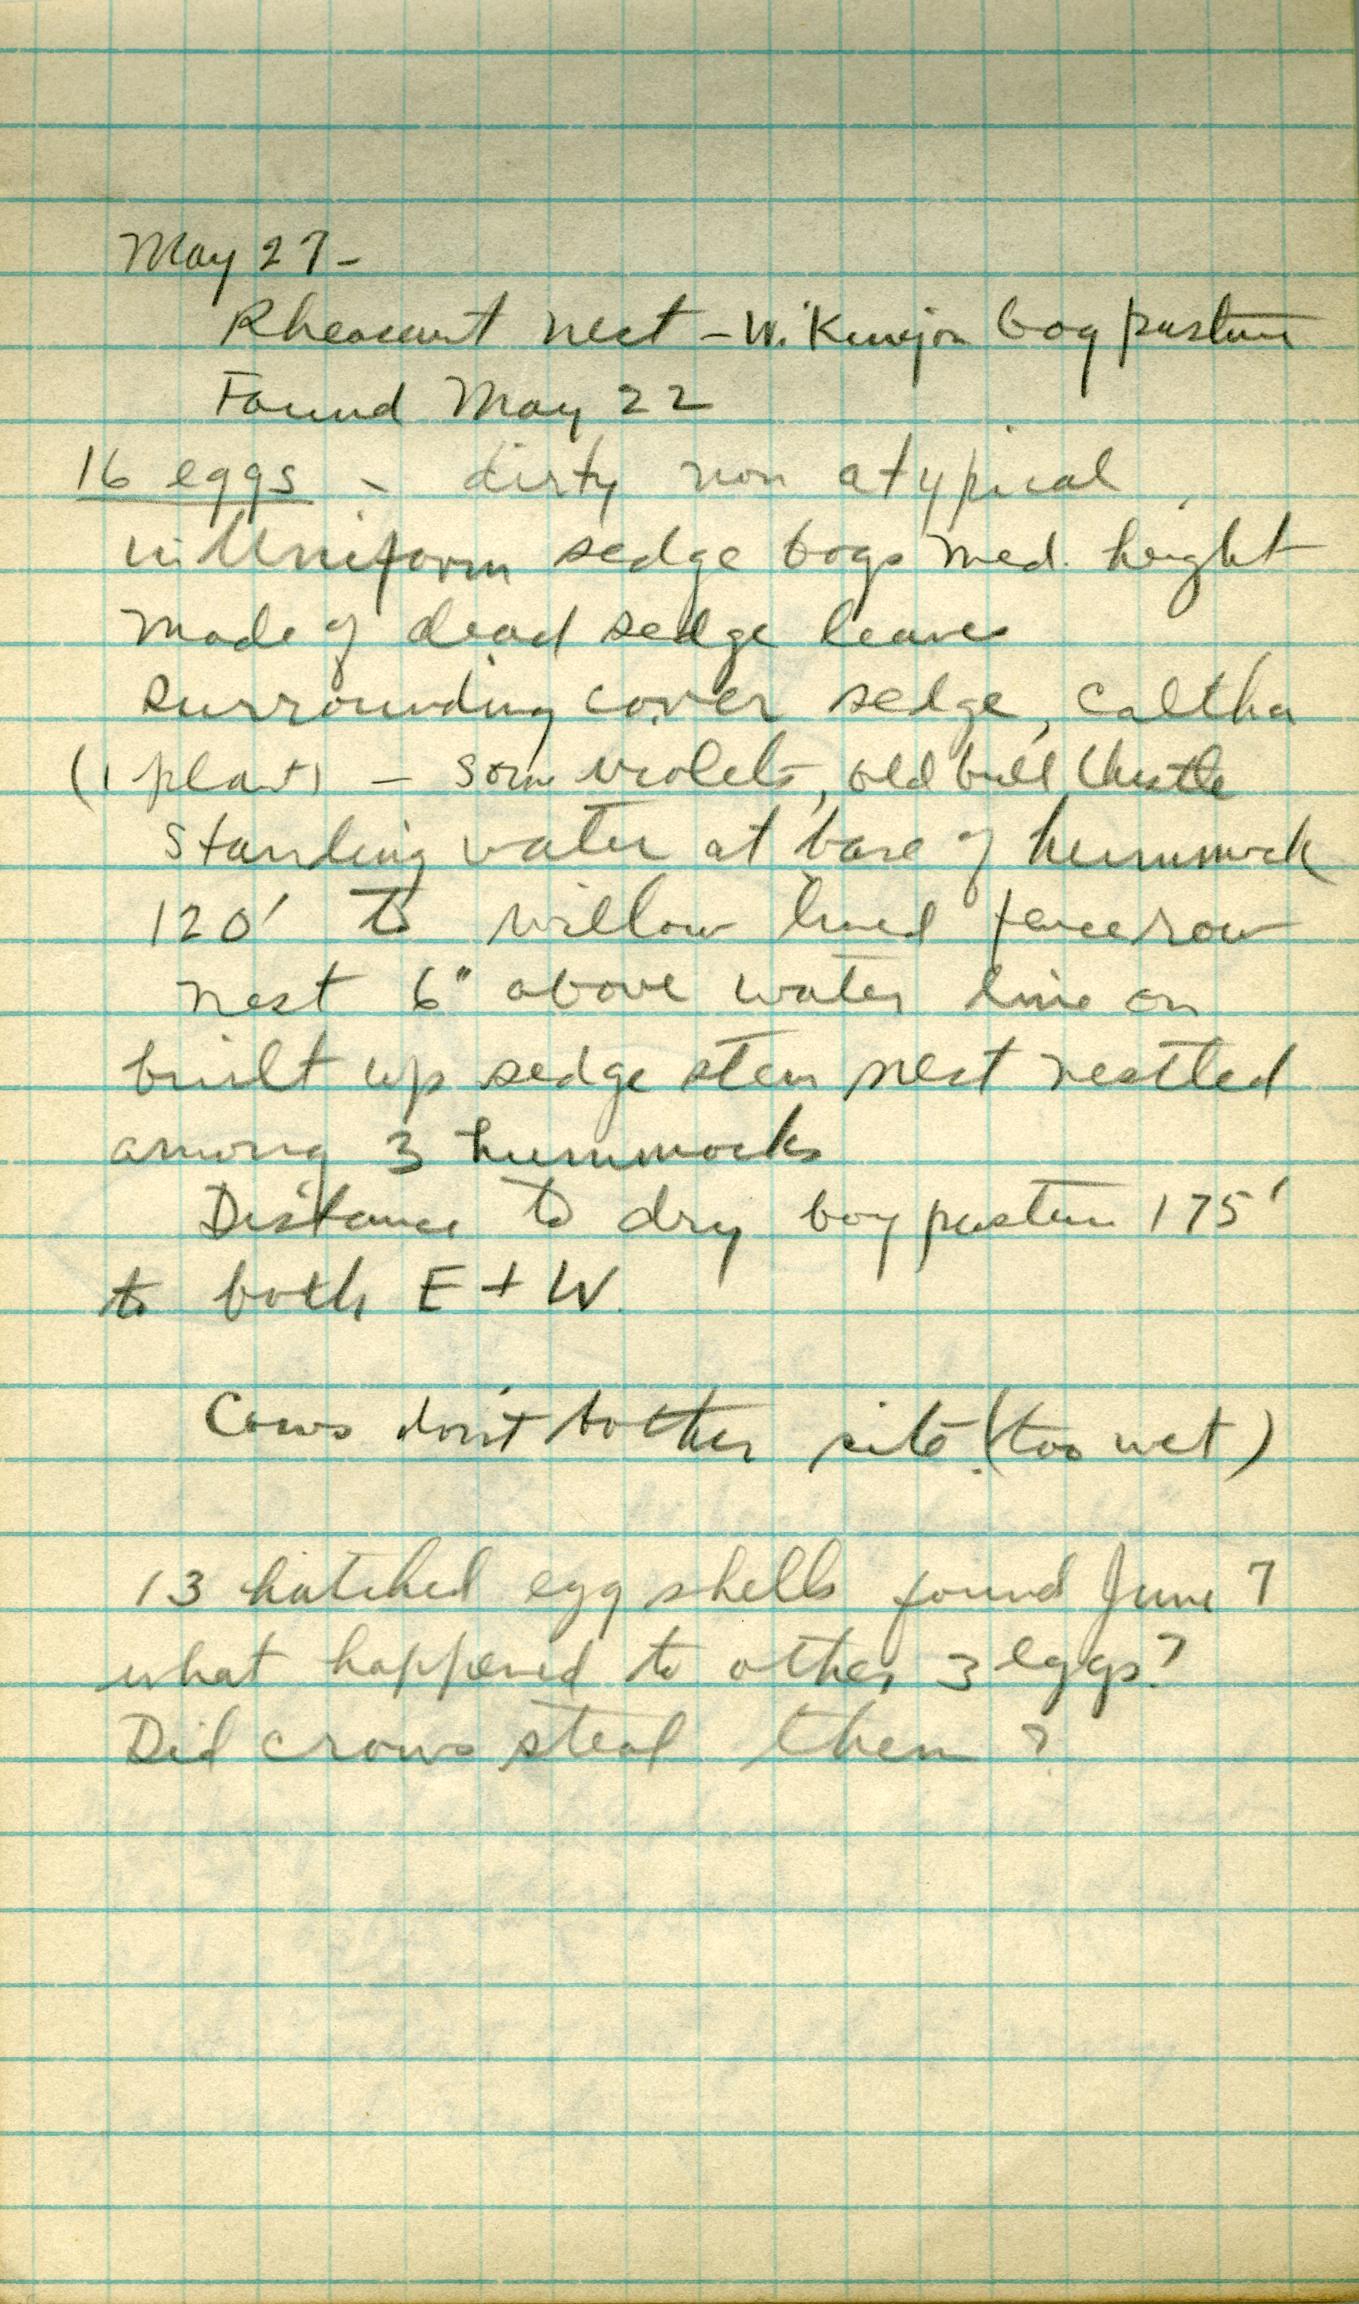 May 27-
Pheasant nest - W. bog pasture
Found May 22
16 eggs - dirty non atypical
in Uniform sedge bogs med. height
Made of dead sedge leaves
Surrounding cover sedge, Caltha
(1 plant) - some violets, old bull thistle
Standing water at base of hummock
120' to willow lined fencerow
nest 6" above water line on
built up sedge stem nest nestled
among 3 hummocks
Distance to dry bog pasture 175'
to both E + W.
Cows don't bother site. (too wet)
13 hatched egg shells found June 7
what happened to other 3 eggs?
Did crows steal them?